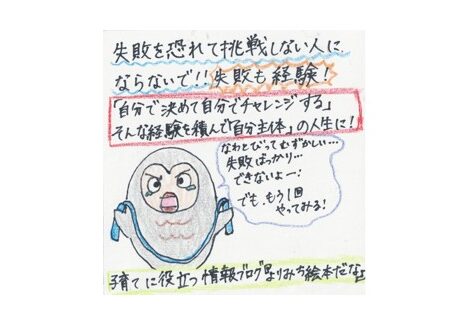 失敗を恐れて挑戦しない人に
ならないで!!失敗も経験!
「自分で決めて自分でチャレンジする」
そんな経験を積んで「自分主体」の人生に!
なわとびってむずかしい…
失敗ばっかり…
できないよー!
でも、もう1回
やってみる!
子育てに役立つ情報ブログ『よりみち絵本だな』